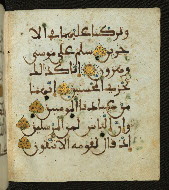 وتركنا عليهما في الا
خرين سلم على موسى
وهرون إنا كذلك
نجزي المحسنين إنهما
من عبادنا المؤمنين
وإن إلياس لمن المرسلين
إذ قال لقومه ألا تتقون